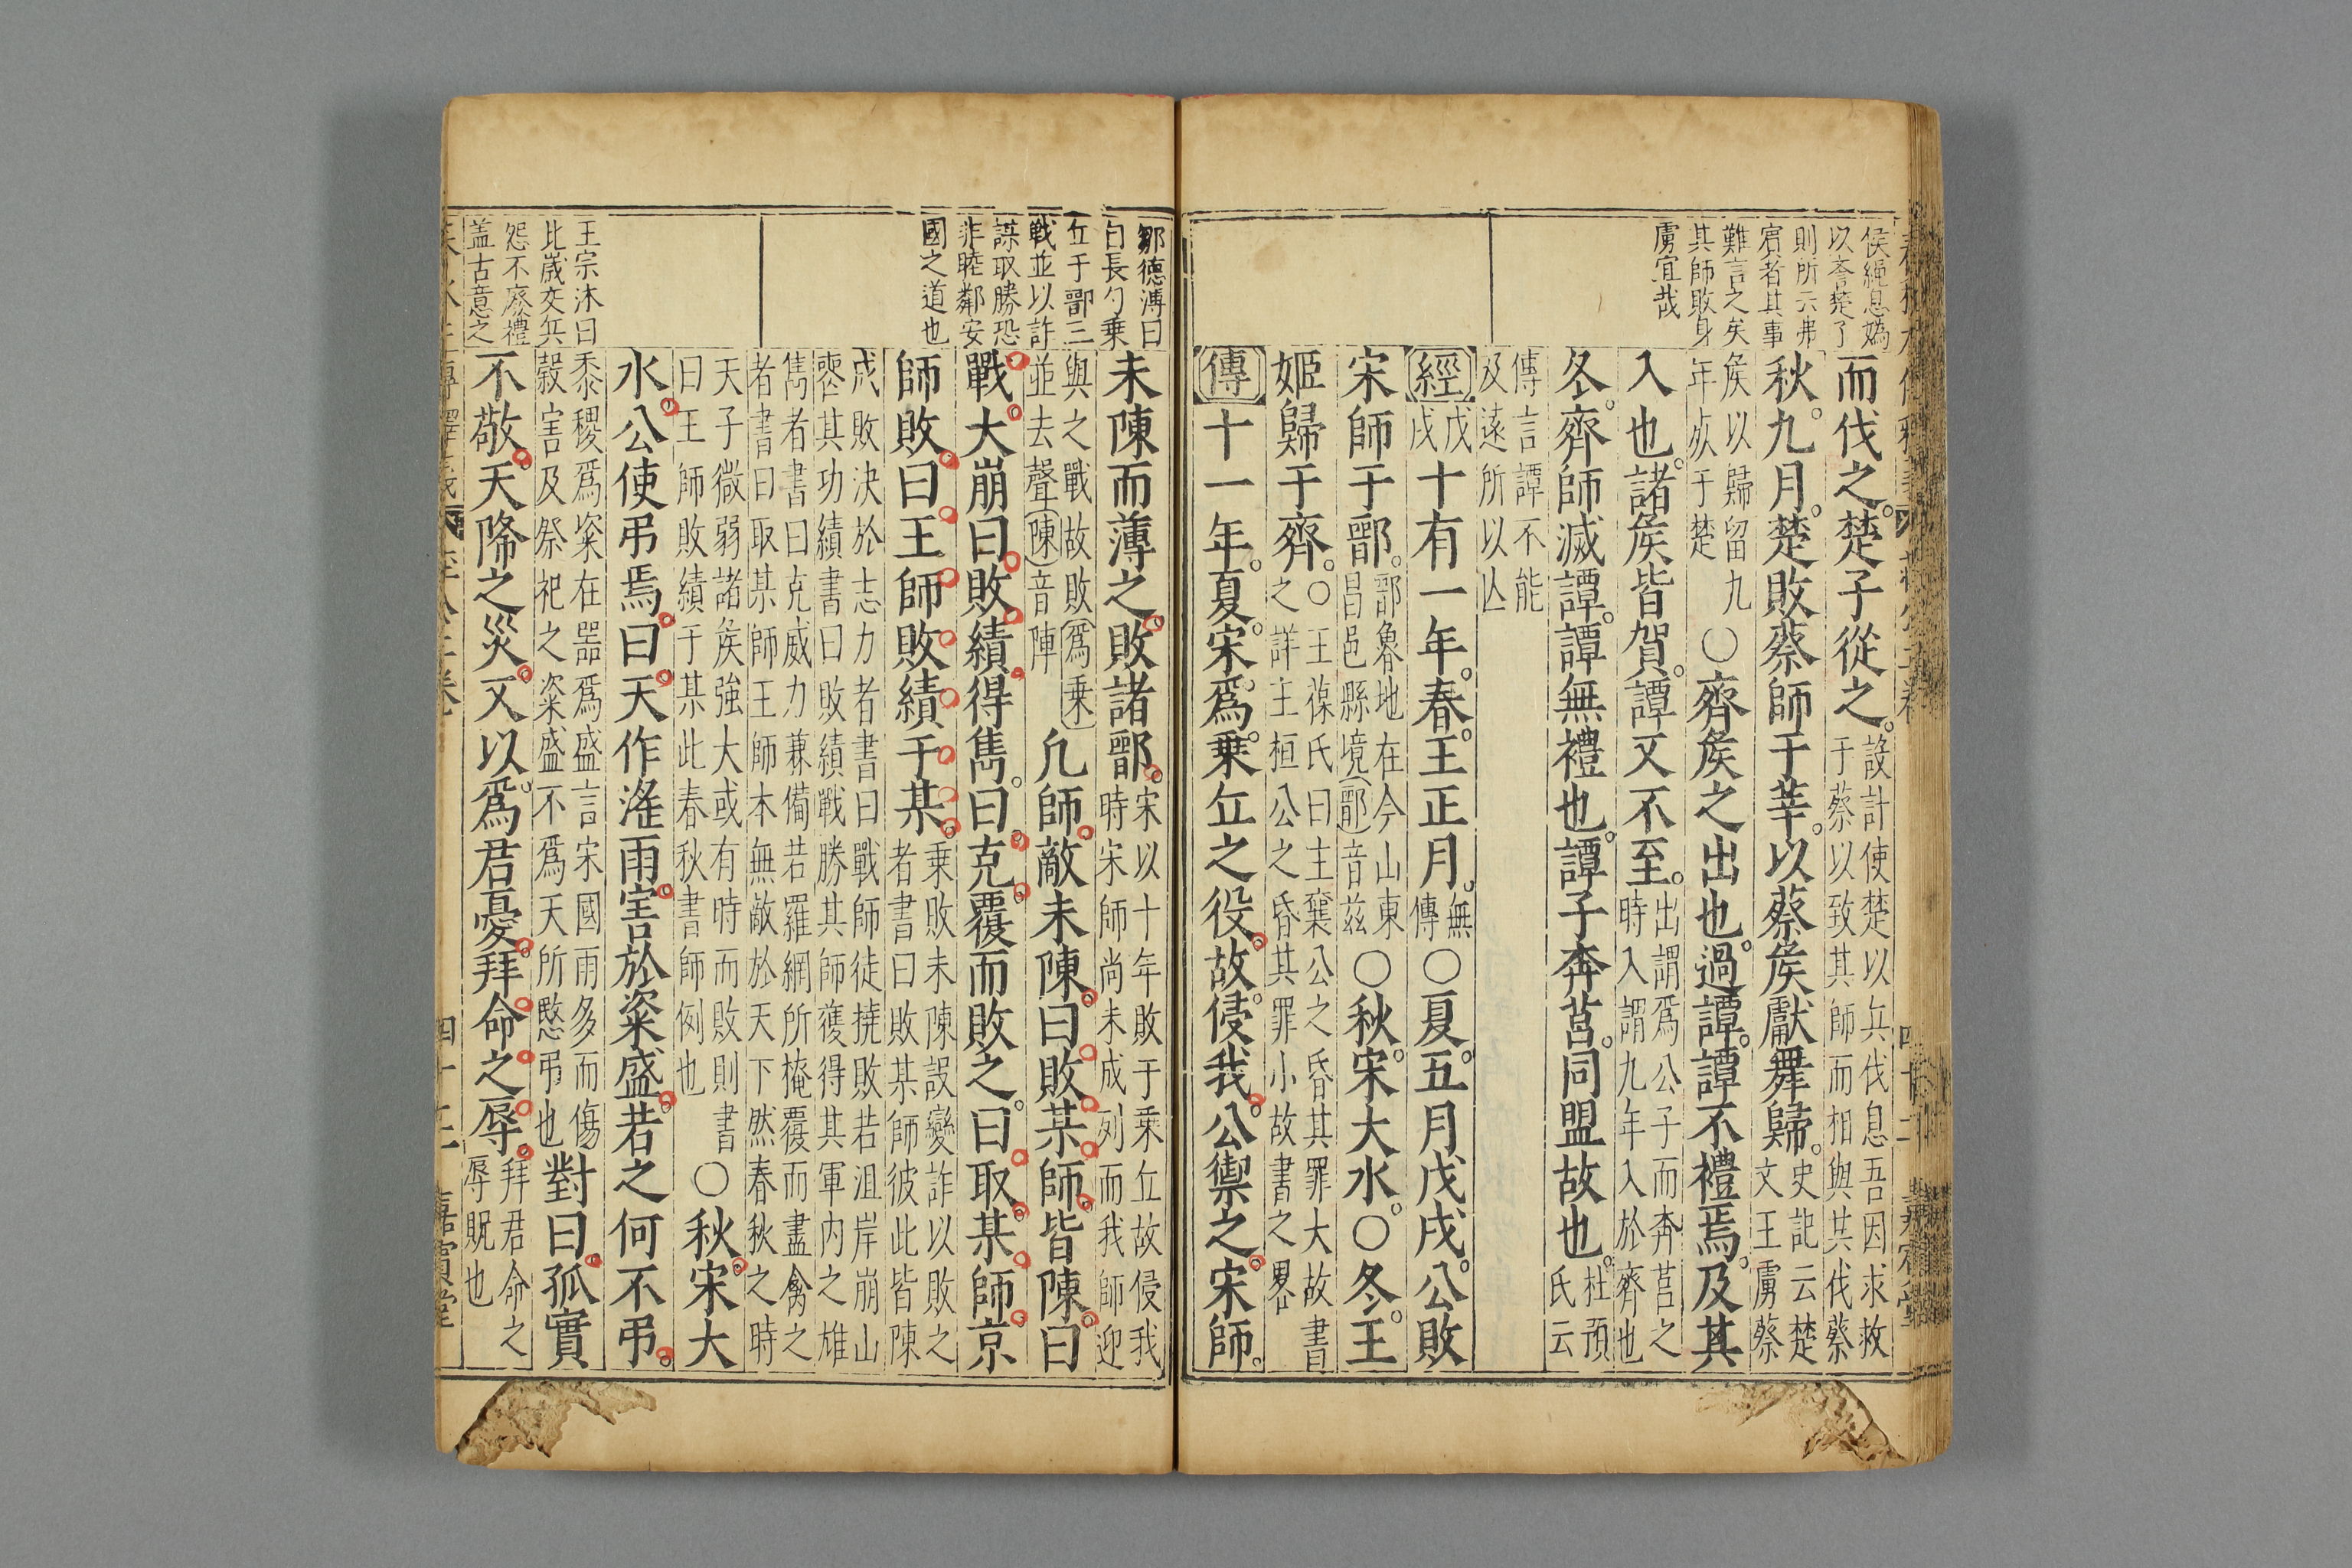 侯繩息媯
以詟楚子
則所云弗
賓者其事
難言之矣
其師敗身
虜宜哉
而伐之楚子從之設計使楚以兵伐息吾因求救
于蔡以致其師而相與其伐蔡
秋九月楚敗蔡師于莘以蔡侯獻舞歸史記云楚
文王虜蔡
侯以歸留九
年死于楚〇齊侯之出也過譚譚不禮焉及其
入也諸侯皆賀譚又不至出謂爲公子而奔莒之
時入謂九年入於齊也
冬齊師滅譚譚無禮也譚子奔莒同盟故也杜預
氏云
傳言譚不能
及遠所以亾
經戊
戌十有一年春王正月無
傳〇夏五月戊戌公敗
宋師于鄑鄑魯地在今山東
昌邑縣境鄑音兹〇秋宋大水〇冬王
姬歸于齊〇王葆氏曰主襄公之昏其罪大故書
之詳主桓公之昏其罪小故書之畧
傳十一年夏宋爲乗丘之役故侵我公禦之宋師
鄒德溥曰
自長勺乗
丘于鄑三
戰並以詐
謀取勝恐
非睦鄰安
國之道也
未陳而薄之敗諸鄑宋以十年敗于乗丘故侵我
時宋師尚未成列而我師迎
與之戰故敗爲乗
並去聲陳音陣凢師敵未陳曰敗某師皆陳曰
戰大崩曰敗績得儁曰克覆而敗之曰取某師京
師敗曰王師敗績于某乗敗未陳設變詐以敗之
者書曰敗某師彼此皆陳
成敗決於志力者書曰戰師徒撓敗若沮岸崩山
喪其功績書曰敗績戰勝其師獲得其軍内之雄
儁者書曰克威力兼備若羅網所掩覆而盡禽之
者書曰取某師王師本無敵於天下然春秋之時
天子微弱諸侯強大或有時而敗則書
曰王師敗績于某此春秋書師例也〇秋宋大
水公使弔焉曰天作滛雨害於粢盛若之何不弔
王宗沐曰
比歳交兵
怨不廢禮
盖古意之
黍稷爲粢在器爲盛言宋國雨多而傷
穀害及祭祀之粢盛不爲天所愍弔也對曰孤實
不敬天降之災又以爲君憂拜命之辱拜君命之
辱貺也
四十二
嘉賓堂